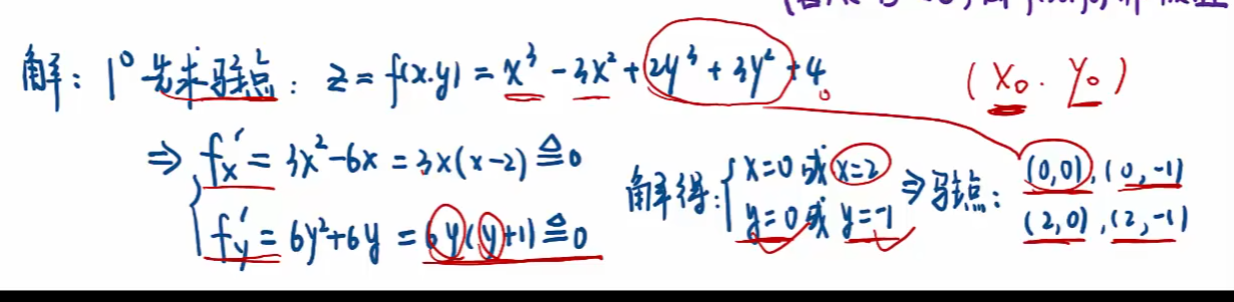 解：1° 先求驻点：z = f(x.y) = x³ - 3x² + 2y³ + 3y² + 4。
(x₀. y₀)
⇒ { f'ₓ = 3x²-6x = 3x(x-2) ≜ 0
f'ᵧ = 6y²+6y = 6y(y+1) ≜ 0
解得：{ x=0 或 x=2
y=0 或 y=-1
⇒ 驻点：(0,0), (0,-1)
(2,0), (2,-1)